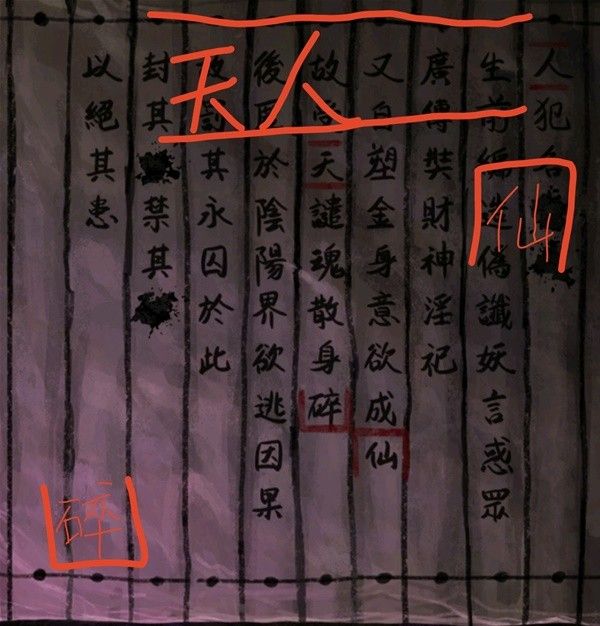 天人
仙
碎
人犯名
生前編造偽讖妖言惑眾
廣傳裝財神淫祀
又自塑金身意欲成仙
故嘗天譴魂散身碎
後匿於陰陽界欲逃因果
其永囚於此
封其禁其
以絕其患